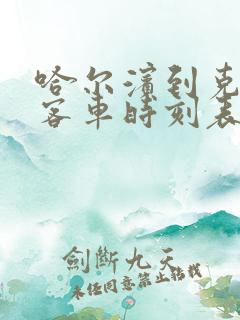 哈尔滨到克
客車時刻表
劍斷九天
未经同意禁止转载